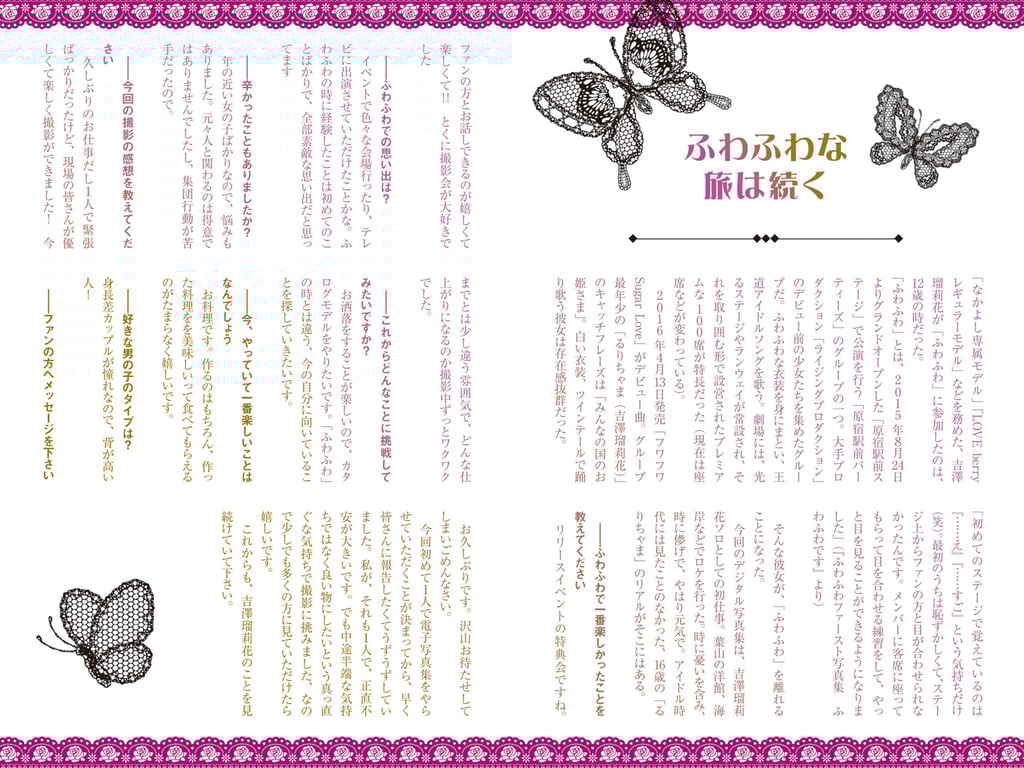 ふわふわな
旅は続く
「なかよし専属モデル」「LOVE berry
レギュラーモデル」などを務めた、吉澤
瑠莉花が「ふわふわ」に参加したのは、
12歳の時だった。
「ふわふわ」とは、2015年8月24日
よりグランドオープンした「原宿駅前ス
テージ」で公演を行う「原宿駅前パー
ティーズ」のグループの一つ。大手プロ
ダクション「ライジングプロダクション」
のデビュー前の少女たちを集めたグルー
プだ。ふわふわな衣装を身にまとい、王
道アイドルソングを歌う。劇場には、光
るステージやランウェイが常設され、そ
れを取り囲む形で設営されたプレミア
ムな100席が特長だった（現在は座
席などが変わっている）。
2016年4月13日発売「フワフワ
Sugar Love」がデビュー曲。グループ
最年少の「るりちゃま（吉澤瑠莉花）」
のキャッチフレーズは「みんなの国のお
姫さま」。白い衣装、ツインテールで踊
り歌う彼女は存在感抜群だった。
「初めてのステージで覚えているのは
『……え』『……すご』という気持ちだけ
（笑）。最初のうちは恥ずかしくて、ステー
ジ上からファンの方と目が合わせられな
かったんです。メンバーに客席に座って
もらって目を合わせる練習をして、やっ
と目を見ることができるようになりま
した」（『ふわふわファースト写真集 ふ
わふわです』より）
そんな彼女が、「ふわふわ」を離れる
ことになった。
今回のデジタル写真集は、吉澤瑠莉
花ソロとしての初仕事。葉山の洋館、海
岸などでロケを行った。時に憂いを含み、
時に儚げで、やはり元気で。アイドル時
代には見たことのなかった、16歳の「る
りちゃま」のリアルがそこにはある。
――ふわふわで一番楽しかったことを
教えてください
リリースイベントの特典会ですね。
ファンの方とお話しできるのが嬉しくて
楽しくて!! とくに撮影会が大好きで
した
――ふわふわでの思い出は?
イベントで色々な会場行ったり、テレ
ビに出演させていただけたことかな。ふ
わふわの時に経験したことは初めてのこ
とばかりで、全部素敵な思い出だと思っ
てます
――辛かったこともありましたか?
年の近い女の子ばかりなので、悩みも
ありました。元々人と関わるのは得意で
はありませんでしたし、集団行動が苦
手だったので。
――今回の撮影の感想を教えてくだ
さい
久しぶりのお仕事だし1人で緊張
ばっかりだったけど、現場の皆さんが優
しくて楽しく撮影ができました! 今
までとは少し違う雰囲気で、どんな仕
上がりになるのか撮影中ずっとワクワク
でした。
――これからどんなことに挑戦して
みたいですか?
お洒落をすることが楽しいので、カタ
ログモデルをやりたいです。「ふわふわ」
の時とは違う、今の自分に向いているこ
とを探していきたいです。
――今、やっていて一番楽しいことは
なんでしょう
お料理です。作るのはもちろん、作っ
た料理をを美味しいって食べてもらえる
のがたまらなく嬉しいです。
――好きな男の子のタイプは?
身長差カップルが憧れなので、背が高い
人!
――ファンの方へメッセージを下さい
お久しぶりです。沢山お待たせして
しまいごめんなさい。
今回初めて1人で電子写真集をやら
せていただくことが決まってから、早く
皆さんに報告したくてうずうずしてい
ました。私が、それも1人で、正直不
安が大きいです。でも中途半端な気持
ちではなく良い物にしたいという真っ直
ぐな気持ちで撮影に挑みました、なの
で少しでも多くの方に見ていただけたら
嬉しいです。
これからも、吉澤瑠莉花のことを見
続けていて下さい。